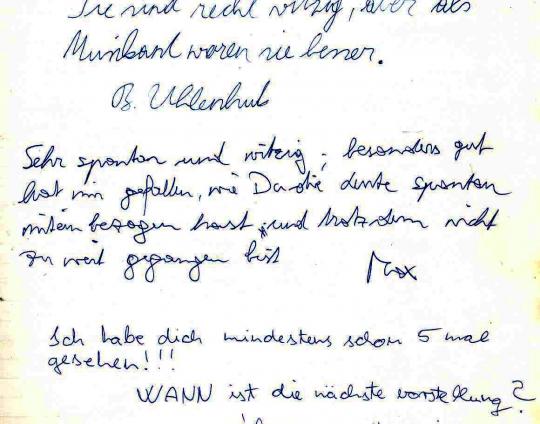 Sie sind recht witzig, aber als
Musikant waren sie besser.
B. Uhlenhut
Sehr spontan und witzig; besonders gut
hat mir gefallen, wie Du die Leute spontan
mitein bezogen hast, und trotzdem nicht
zu weit gegangen bist
Max
Ich habe dich mindestens schon 5 mal
gesehen!!!
WANN ist die nächste vorstellung?